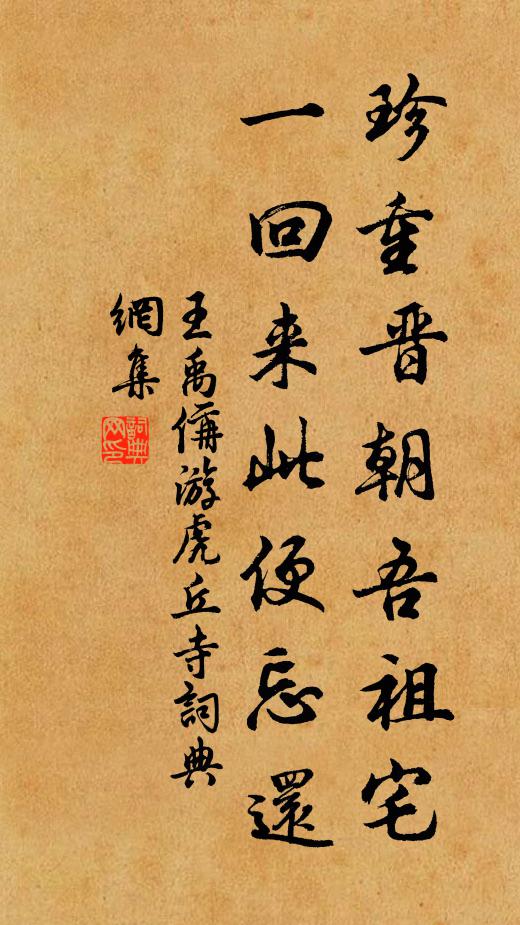 珍重晋朝吾祖宅
一回来此便忘還
王禹偁游虎丘寺詞典
網集
詞典網印